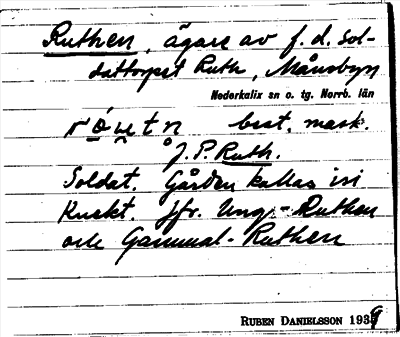 Ruthen, ägare av f. d. sol-
dattorpet Ruth, Månsbyn
Nederkalix sn o. tg. Norrb. län
best. mask.
J. P. Ruth.
Soldat. Gården kallas
Knekt. Jfr. Ung-Ruthen
och Gammal-Ruthen
RUBEN DANIELSSON 1939